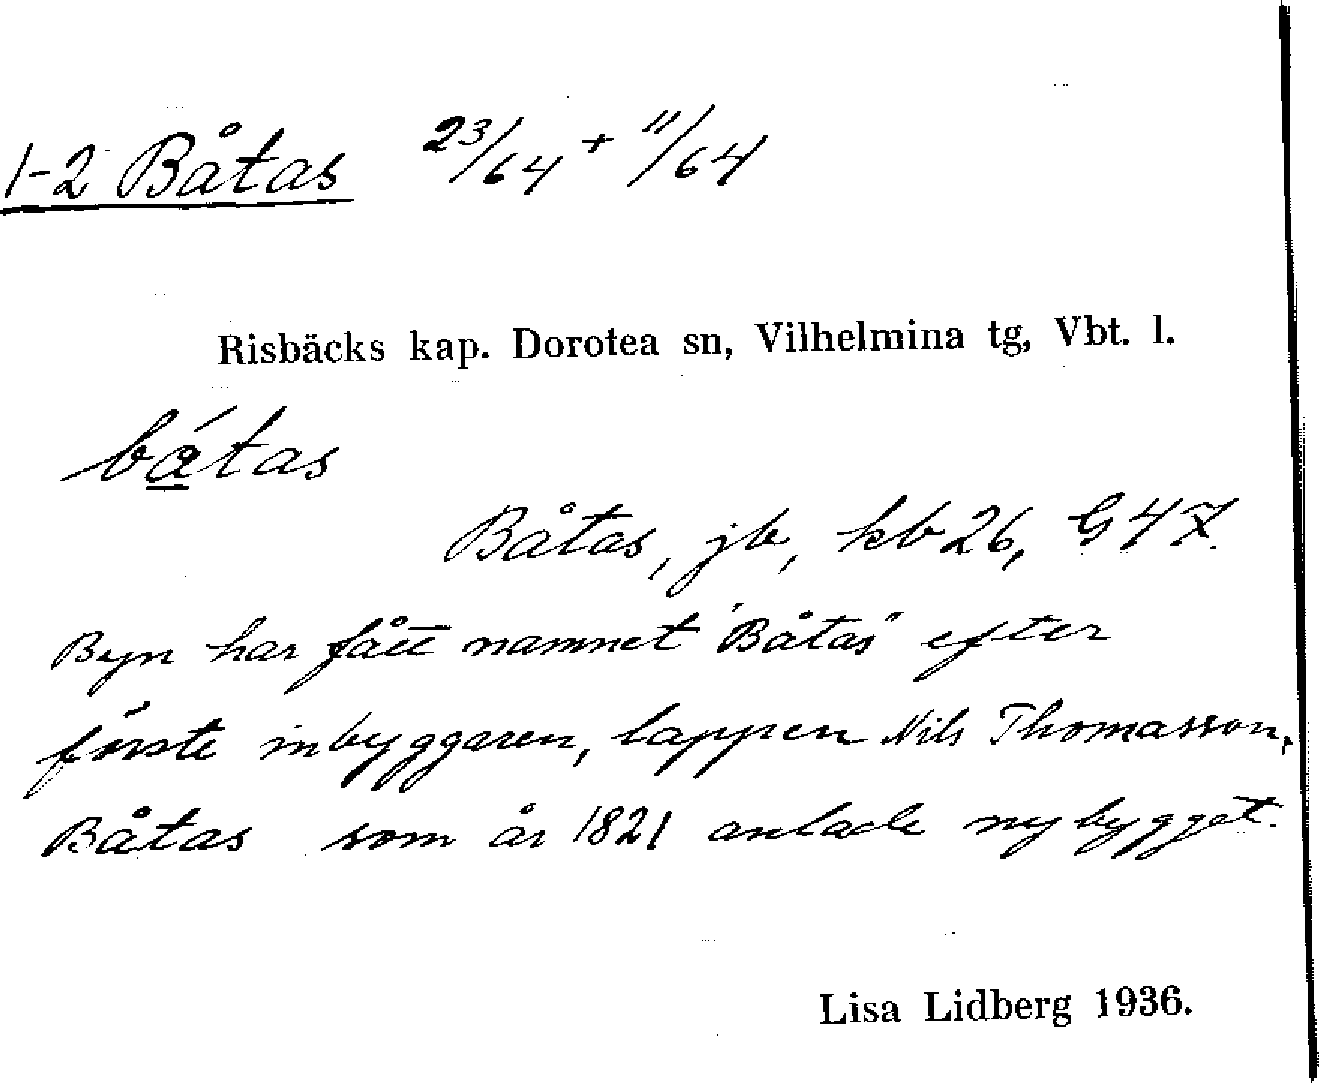 1-2 Båtas 23/64 + 11/64
Risbäcks kap. Dorotea sn, Vilhelmina tg, Vbt. l.
bá̱tas
Båtas, jb, kb 26, G 47.
Byn har fått namnet "Båtas" efter
förste inbyggaren, lappen Nils Thomasson,
Båtas som år 1821 anlade nybygget.
Lisa Lidberg 1936.